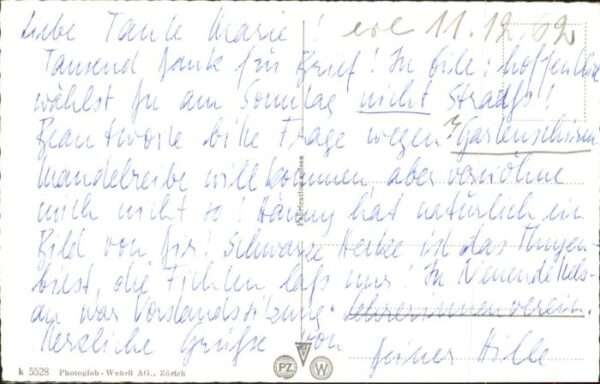 Liebe Tante Marie! erl 11.12.62
Tausend Dank für Brief! In Eile: hoffentlich
wählst Du am Sonntag nicht Strauß!
Beantworte bitte Frage wegen Gartenschirm
Mandelreibe willkommen, aber verwöhne
mich nicht so! Hanny hat natürlich ein
Bild von Dir! Schwarze Hecke ist das
die Fichten laß nur! In
war Vorstandssitzung. Lehrerinnenverein.
Herzliche Grüße von
Deiner Hille
k 5528 Photoglob-Wehrli AG., Zürich
PZ W